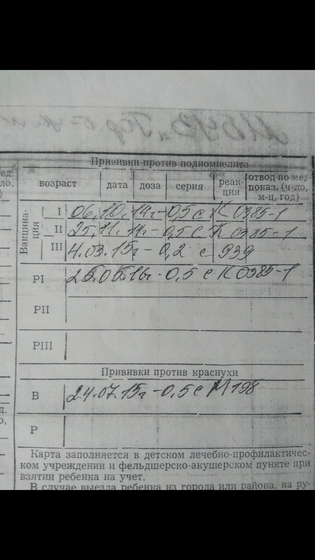 Прививки против полиомиелита
возраст дата доза серия реак- ция отвод по мед. показ. (ч-ло, м-ц, год)
Вакцина- ция I 06.10.14г-0,5 с К 0385-1
II 25.11.14г-0,5 с К 0385-1
III 4.03.15г-0,2 с 939
РI 25.05.16г-0,5 с К 0385-1
РII
РIII
Прививки против краснухи
В 24.07.15г-0,5 с М198
Р
Карта заполняется в детском лечебно-профилактичес-
ком учреждении и фельдшерско-акушерском пункте при
взятии ребенка на учет.
В случае выезда ребенка из города или района, на ру-